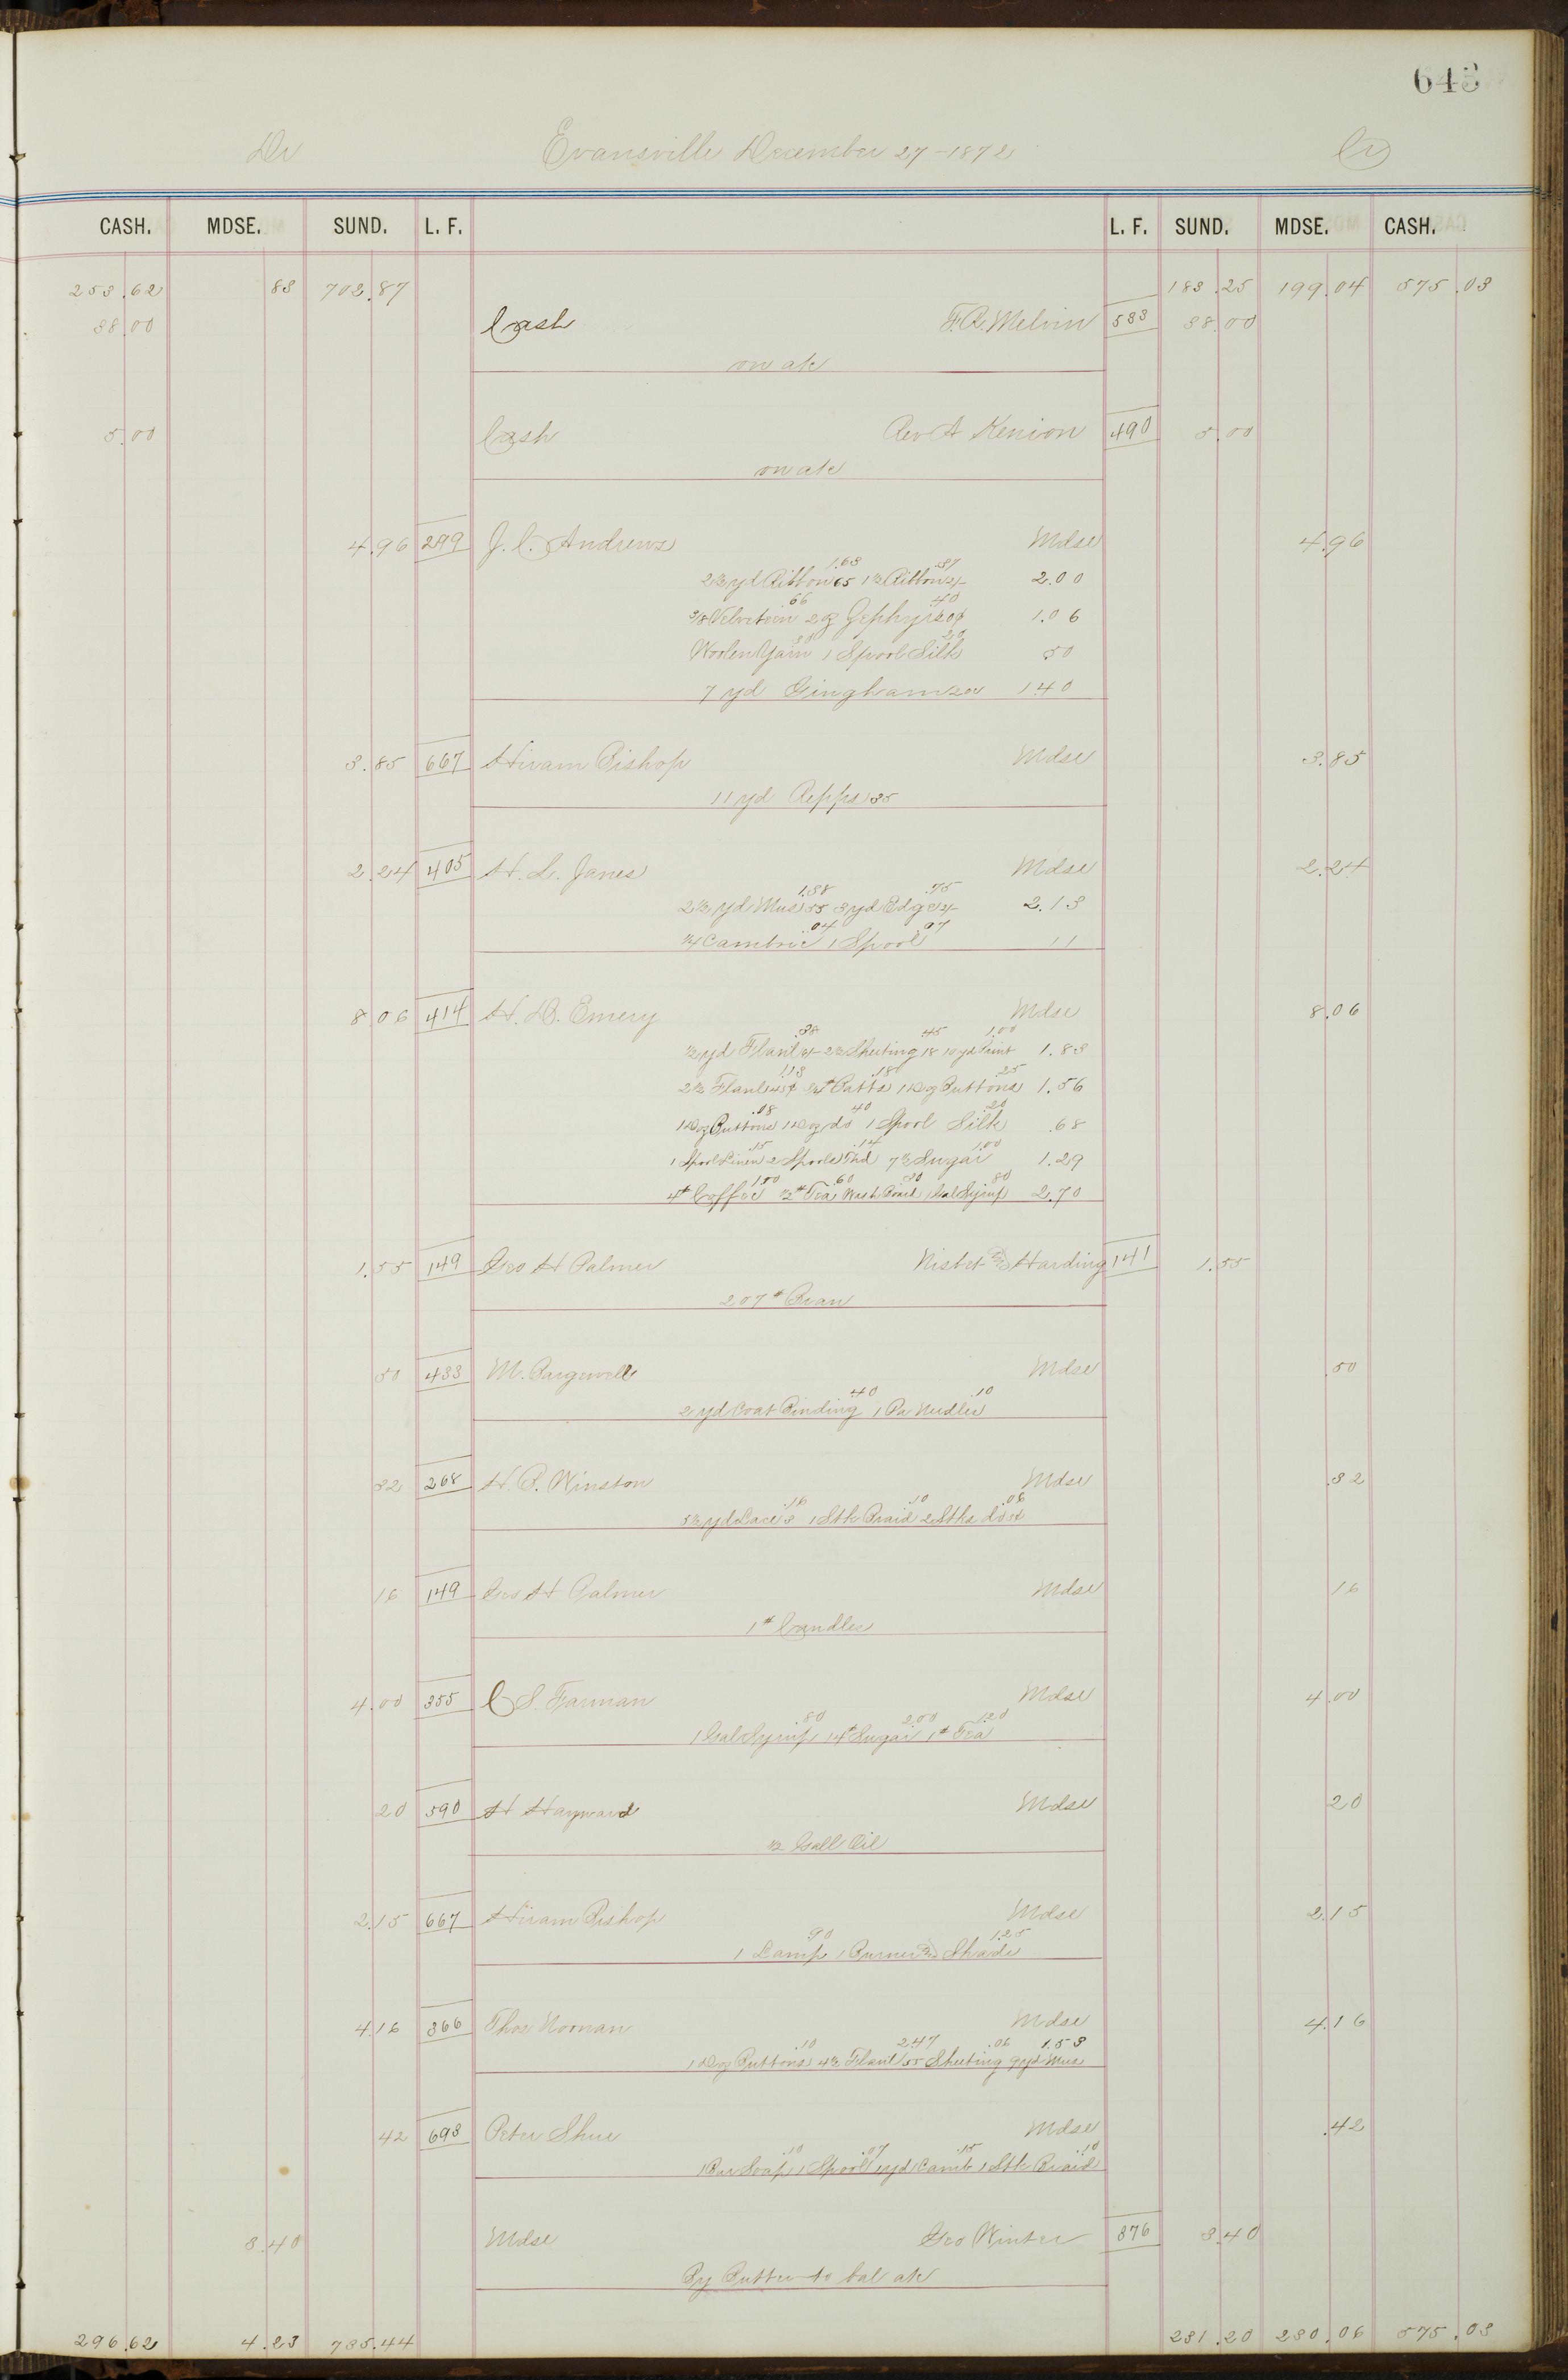 643
Dr Evansville December 27-1872 Cr
CASH. MDSE. SUND. L. F. L. F. SUND. MDSE. CASH.
253.62 83 702.87 183.25 199.04 575.03
38.00 Cash F.R. Melvin 533 38.00
on a/c
5.00 Cash Rev A Kenion 490 5.00
on a/c
4.96 299 J. C. Andrews Mdse 4.96
1.63 .37
2½ yd Ribbon 65 1½ Ribbon 24 2.00
66 .40
3/8 Velveteen 2 oz Zephyr 20¢ 1.06
30 20
Woolen Yarn 1 Spool Silk 50
7 yd Gingham 20c 1.40
3.85 667 Hiram Bishop Mdse 3.85
11 yd Repps 35
2.24 405 H. L. Janes Mdse 2.24
1.38 .75
2½ yd Mus 55 3 yd Edge 24 2.13
.04 .07
¼ Cambric 1 Spool 11
8.06 414 H. D. Emery Mdse 8.06
.38 45 1.00
½ yd Flanl 2½ Sheeting 18 10 yd Print 1.83
1.13 .18 .25
2½ Flanl 45¢ ¾# Batts 1 Doz Buttons 1.56
.08 40 .20
1 Doz Buttons 1 Doz do 1 Spool Silk .68
.15 .14 1.00
1 Spool Linen 2 Spools Thd 7½ Sugar 1.29
1.00 .60 30 80
4# Coffee ½# Tea Wash Board 1 Gal Syrup 2.70
1.55 149 Geo H Palmer Nisbet & Harding 141 1.55
207# Bran
50 433 M. Bargewell Mdse .50
40 .10
2 yd Coat Binding 1 Pa Needles
32 268 H. B. Winston Mdse .32
.16 .10 .06
5½ yd Lace 3 1 Stk Braid 2 Stks do
16 149 Geo H Palmer Mdse 16
1# Candles
4.00 355 C S. Farman Mdse 4.00
.80 2.00 1.20
1 Gal Syrup 14# Sugar 1# Tea
20 590 H Hayward Mdse 20
½ Gall Oil
2.15 667 Hiram Bishop Mdse 2.15
90 1.25
1 Lamp 1 Burner & Shade
4.16 366 Thos Noonan Mdse 4.16
.10 2.47 .06 1.53
1 Doz Buttons 4½ Flanl 55 Sheeting 9 yd Mus
42 693 Peter Shue Mdse .42
.10 .07 .15 .10
1 Bar Soap 1 Spool 1 yd Camb 1 Stk Braid
3.40 Mdse Geo Winter 376 3.40
By Butter to bal a/c
296.62 4.23 735.44 231.20 230.06 575.03